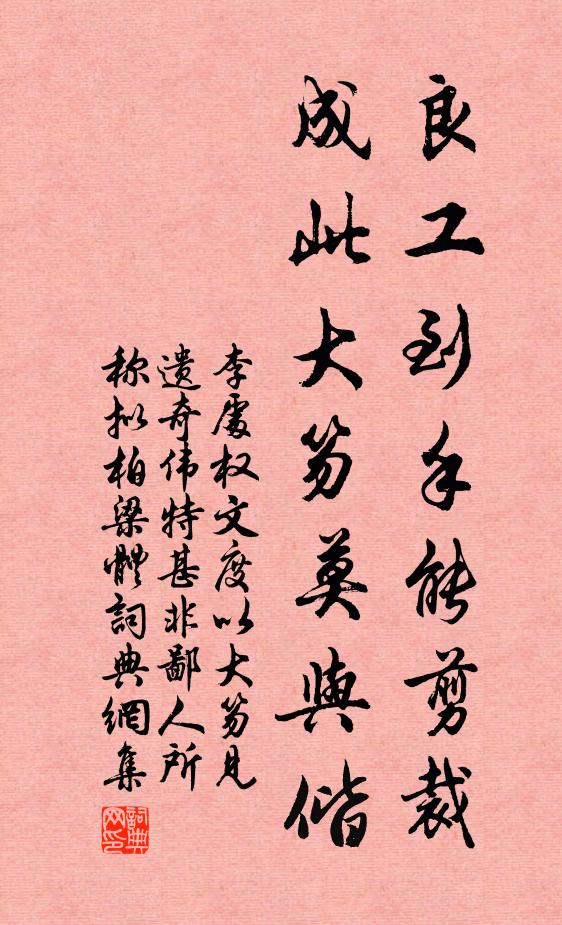 良工到手能剪裁
成此大笏莫與偕
李處权文度以大笏見
遺奇伟特甚非鄙人所
称拟柏梁體詞典網集
詞典
网印